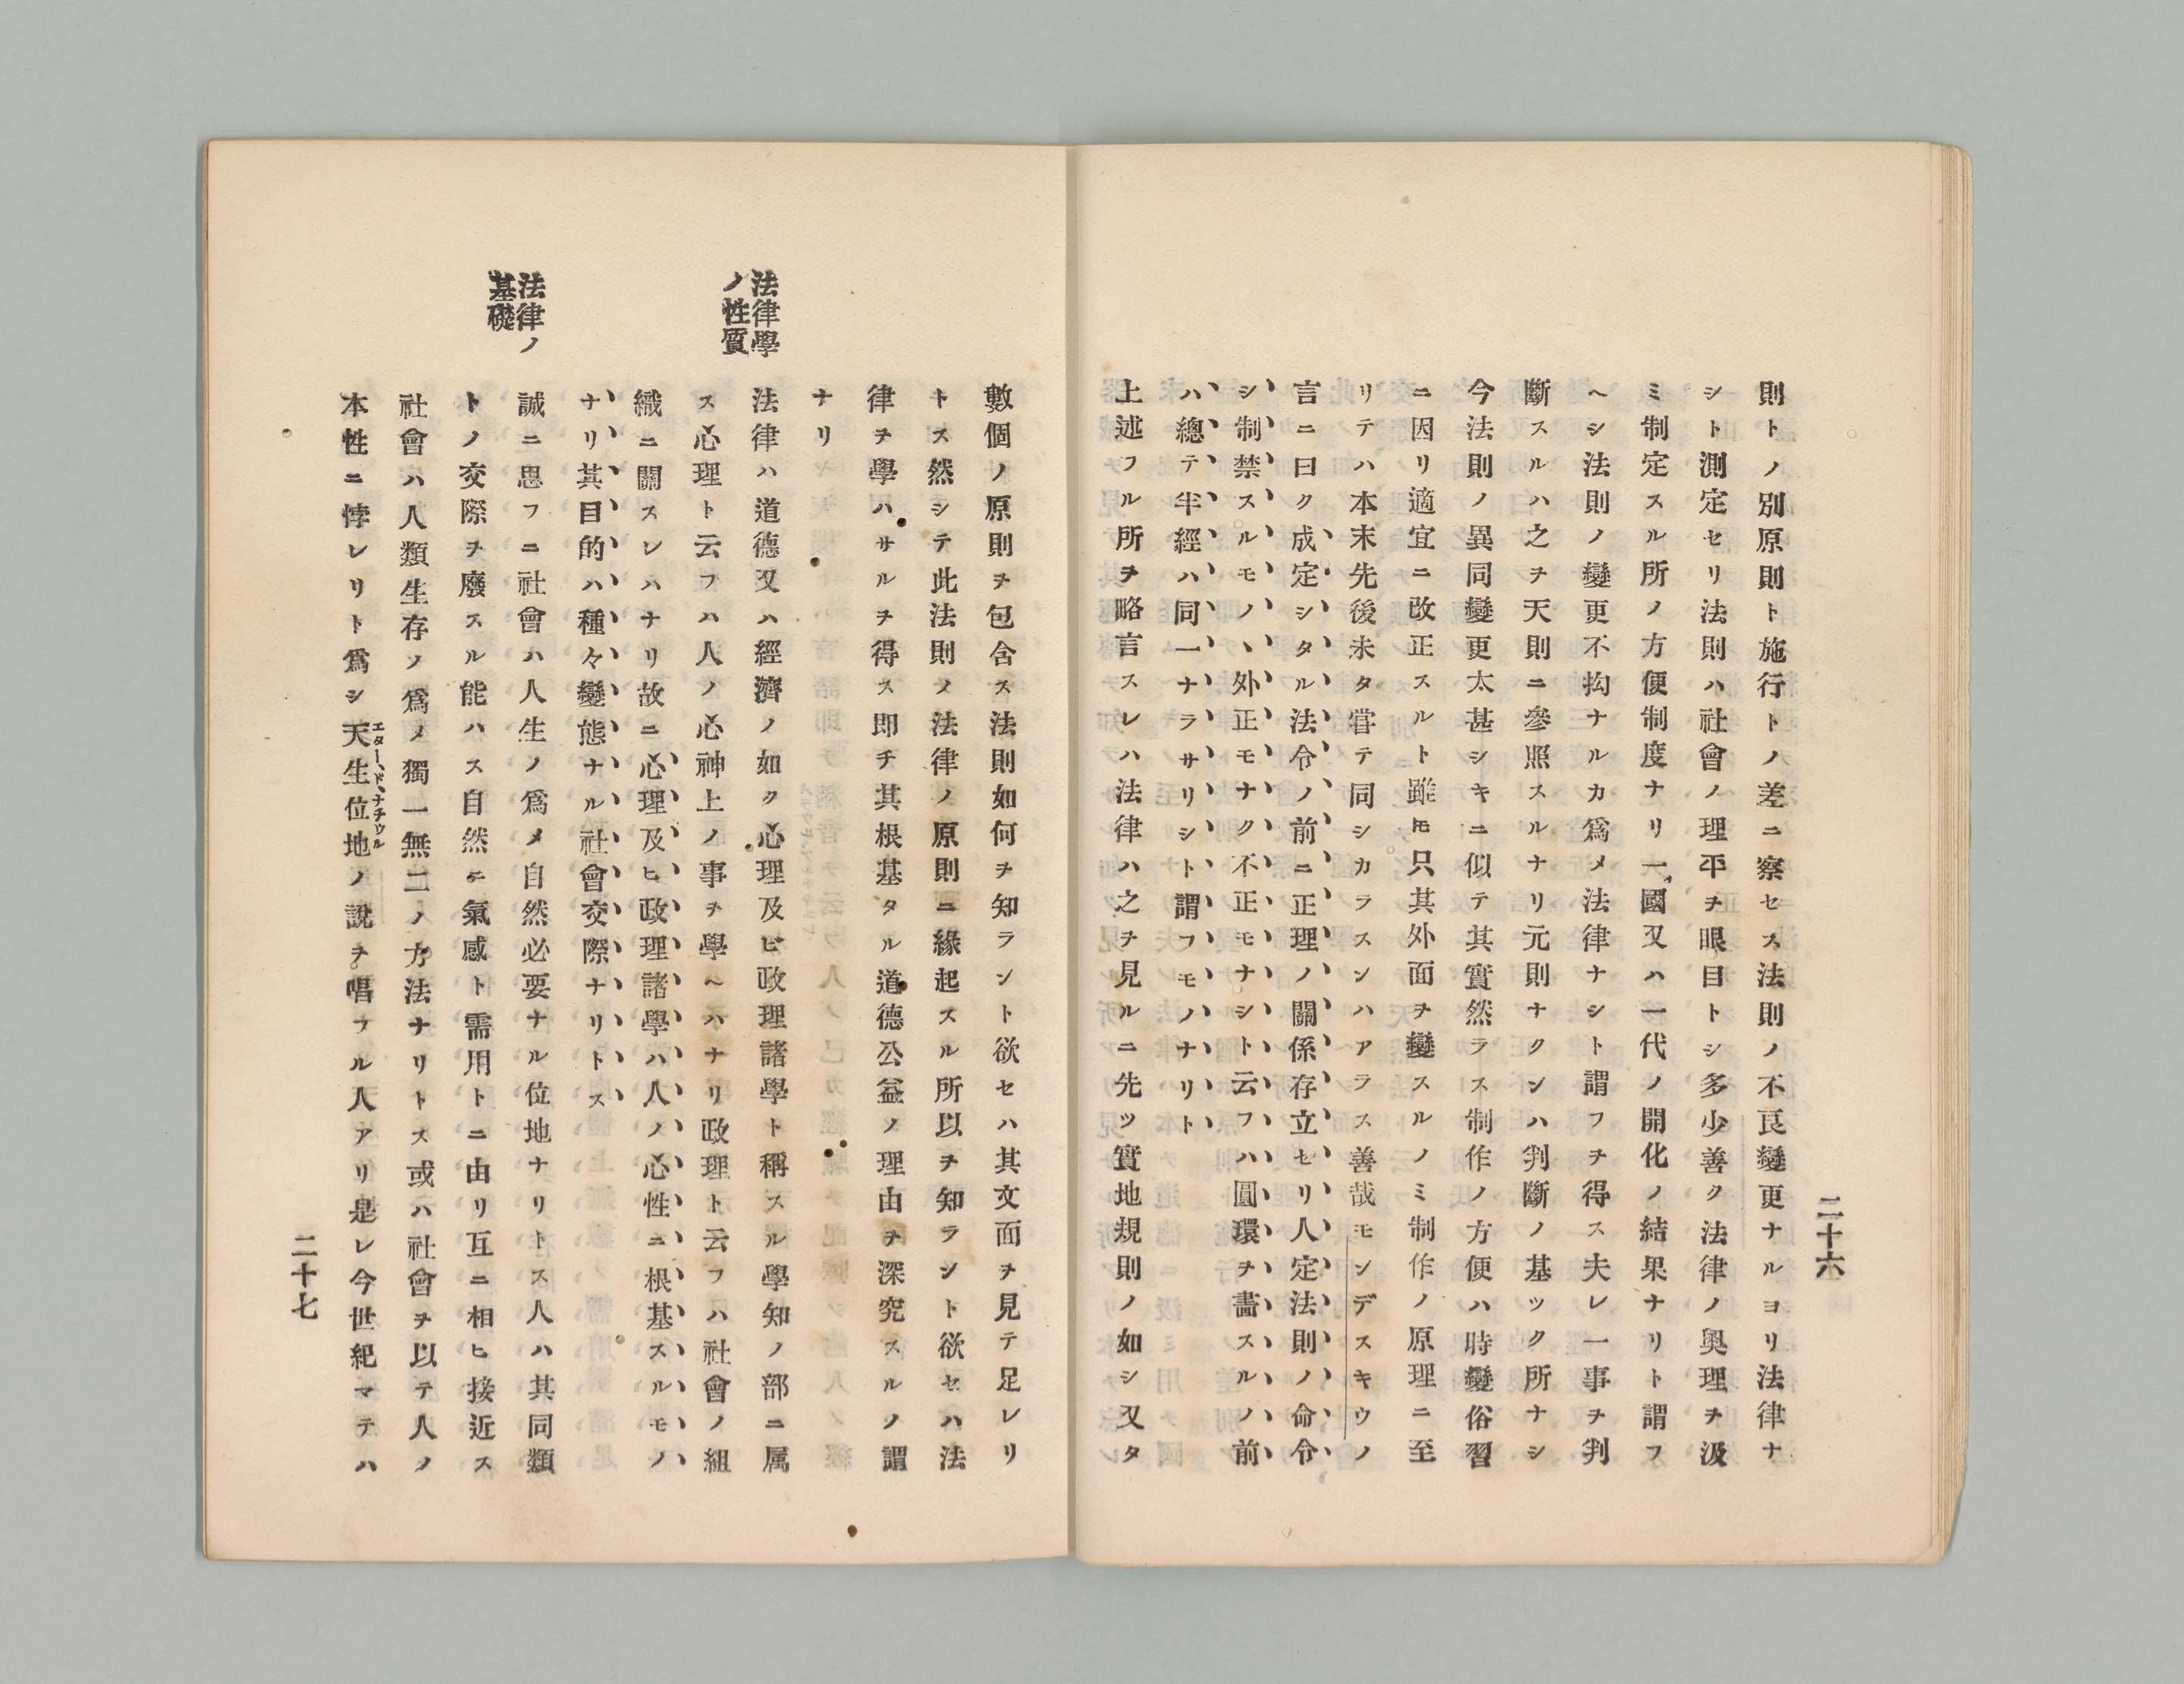 二十六
則トノ別原則ト施行トノ差ニ察セス法則ノ不良變更ナルヨリ法律ナ
シト測定セリ法則ハ社會ノ理平ヲ眼目トシ多少善ク法律ノ奥理ヲ汲
ミ制定スル所ノ方便制度ナリ一國又ハ一代ノ開化ノ結果ナリト謂フ
ヘシ法則ノ變更不拘ナルカ爲メ法律ナシト謂フヲ得ス夫レ一事ヲ判
斷スルハ之ヲ天則ニ參照スルナリ元則ナクンハ判斷ノ基ツク所ナシ
今法則ノ異同變更太甚シキニ似テ其實然ラス制作ノ方便ハ時變俗習
ニ因リ適宜ニ改正スルト雖𪜈只其外面ヲ變スルノミ制作ノ原理ニ至
リテハ本末先後未タ嘗テ同シカラスンハアラス善哉モンデスキウノ
言ニ曰ク成定シタル法令ノ前ニ正理ノ關係存立セリ人定法則ノ命令
シ制禁スルモノヽ外正モナク不正モナシト云フハ圓環ヲ畵スルノ前
ハ總テ半經ハ同一ナラサリシト謂フモノナリト
上述フル所ヲ略言スレハ法律ハ之ヲ見ルニ先ツ實地規則ノ如シ又タ
數個ノ原則ヲ包含ス法則如何ヲ知ラント欲セハ其文面ヲ見テ足レリ
トス然シテ此法則ノ法律ノ原則ニ緣起スル所以ヲ知ラント欲セハ法
律ヲ學ハサルヲ得ス即チ其根基タル道德公益ノ理由ヲ深究スルノ謂
ナリ
法律學
ノ性質
法律ハ道德又ハ經濟ノ如ク心理及ビ政理諸學ト稱スル學知ノ部ニ属
ス心理ト云フハ人ノ心神上ノ事ヲ學ヘハナリ政理ト云フハ社會ノ組
織ニ關スレハナリ故ニ心理及ヒ政理諸學ハ人ノ心性ニ根基スルモノ
ナリ其目的ハ種々變態ナル社會交際ナリトス
法律ノ
基礎
誠ニ思フニ社會ハ人生ノ爲メ自然必要ナル位地ナリトス人ハ其同類
トノ交際ヲ廢スル能ハス自然ニ氣感ト需用トニ由リ互ニ相ヒ接近ス
社會ハ人類生存ノ爲メ獨一無二ノ方法ナリトス或ハ社會ヲ以テ人ノ
本性ニ悖レリト爲シ天生位地ノ說ヲ唱フル人アリ是レ今世紀マテハ
エタード、ナチウル
二十七